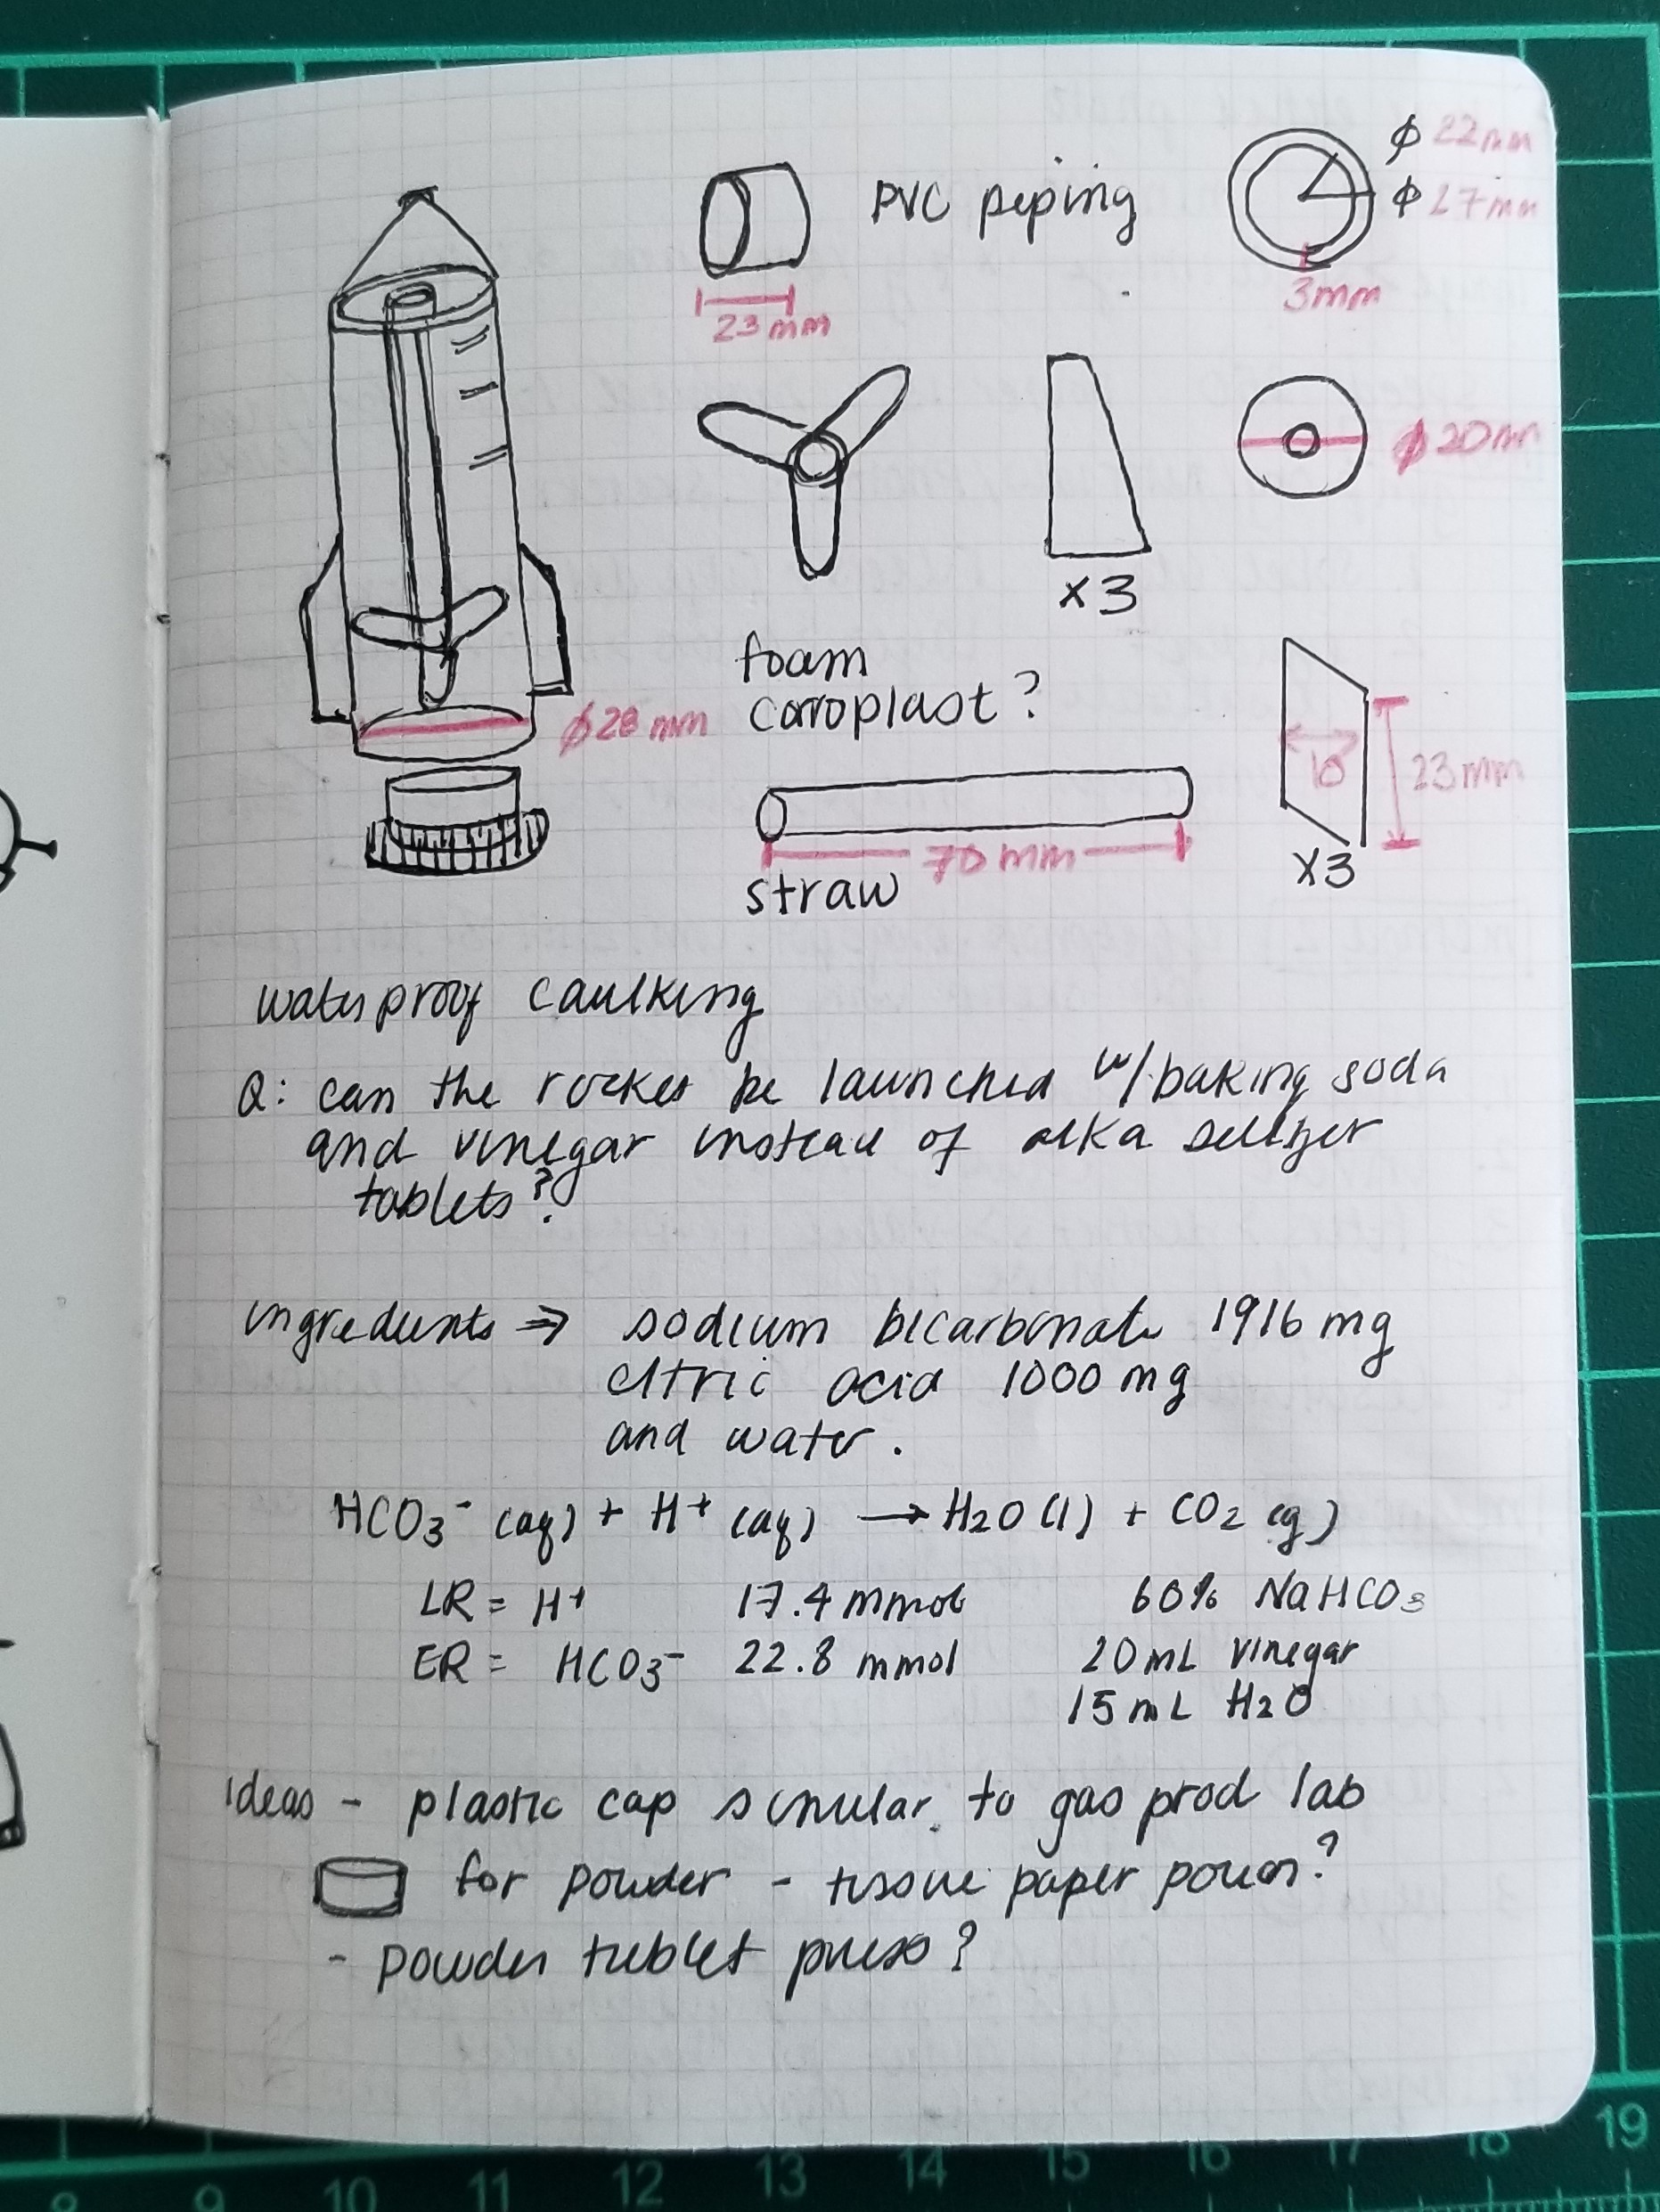 PVC piping
φ 22mm
φ 27mm
3mm
23 mm
φ 20m
x3
foam
coroplast?
φ 28 mm
10
23mm
x3
70 mm
straw
waterproof caulking
Q: can the rocket be launched w/baking soda
and vinegar instead of alka seltzer
tablets?
ingredients ⇒ sodium bicarbonate 1916 mg
citric acid 1000 mg
and water.
HCO3⁻ (aq) + H⁺ (aq) → H2O (l) + CO2 (g)
LR = H⁺ 17.4 mmol 60% NaHCO3
ER = HCO3⁻ 22.8 mmol 20 mL vinegar
15 mL H2O
ideas - plastic cap similar to gas prod lab
for powder - tissue paper pouch?
- powder tablet press?
8 9 10 11 12 13 14 15 16 17 18 19